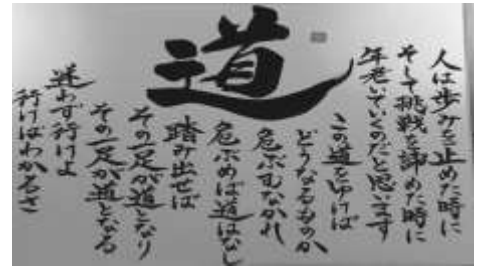 人は歩みを止めた時に
そして挑戦を諦めた時に
年老いていくのだと思います
道
この道をゆけば
どうなるものか
危ぶむなかれ
危ぶめば道はなし
踏み出せば
その一足が道となり
その一足が道となる
迷わず行けよ
行けばわかるさ